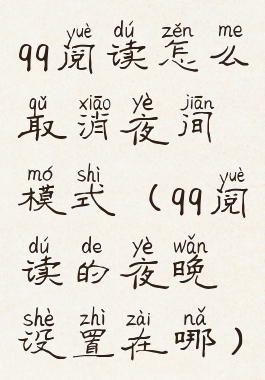 yuè dú zěn me
99阅读怎么
qǔ xiāo yè jiān
取消夜间
mó shì yuè
模式（99阅
dú de yè wǎn
读的夜晚
shè zhì zài nǎ
设置在哪）